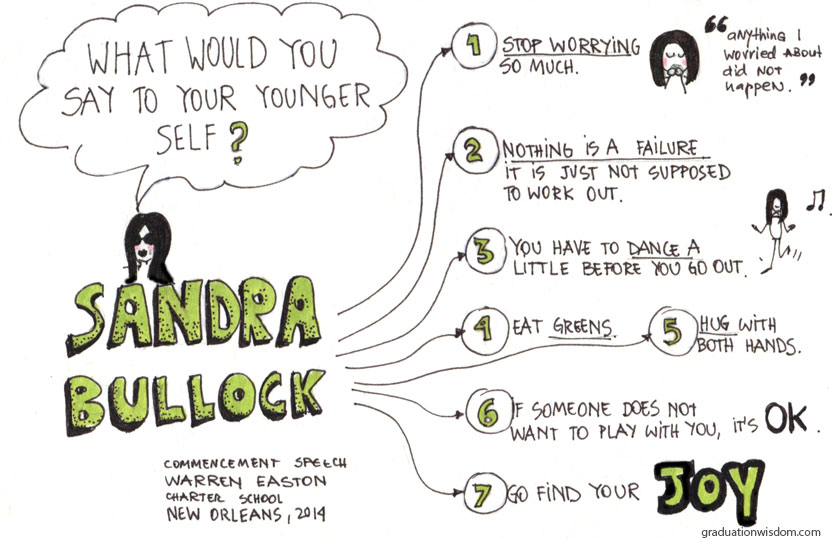 WHAT WOULD YOU
SAY TO YOUR YOUNGER
SELF?
SANDRA
BULLOCK
COMMENCEMENT SPEECH
WARREN EASTON
CHARTER SCHOOL
NEW ORLEANS, 2014
1 STOP WORRYING
SO MUCH.
“ anything I
worried about
did not
happen. ”
2 NOTHING IS A FAILURE
IT IS JUST NOT SUPPOSED
TO WORK OUT.
3 YOU HAVE TO DANCE A
LITTLE BEFORE YOU GO OUT.
4 EAT GREENS.
5 HUG WITH
BOTH HANDS.
6 IF SOMEONE DOES NOT
WANT TO PLAY WITH YOU, it's OK.
7 GO FIND YOUR JOY
graduationwisdom.com